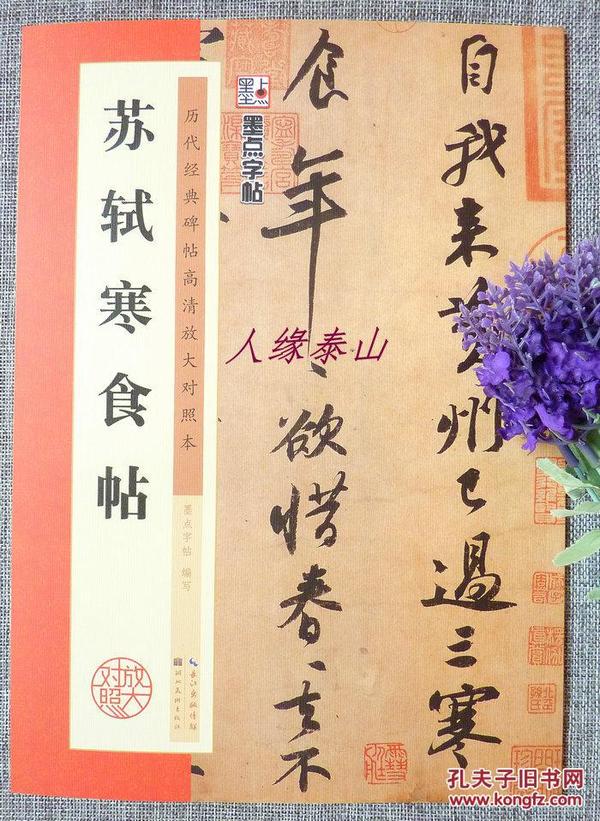 苏轼寒食帖
历代经典碑帖高清放大对照本
墨点字帖 编写
放大
对照
长江出版传媒
湖北美术出版社
墨点
墨点字帖
自我来黄州已過三寒
食年〻欲惜春〻去不
人缘泰山
孔夫子旧书网
www.kongfz.com